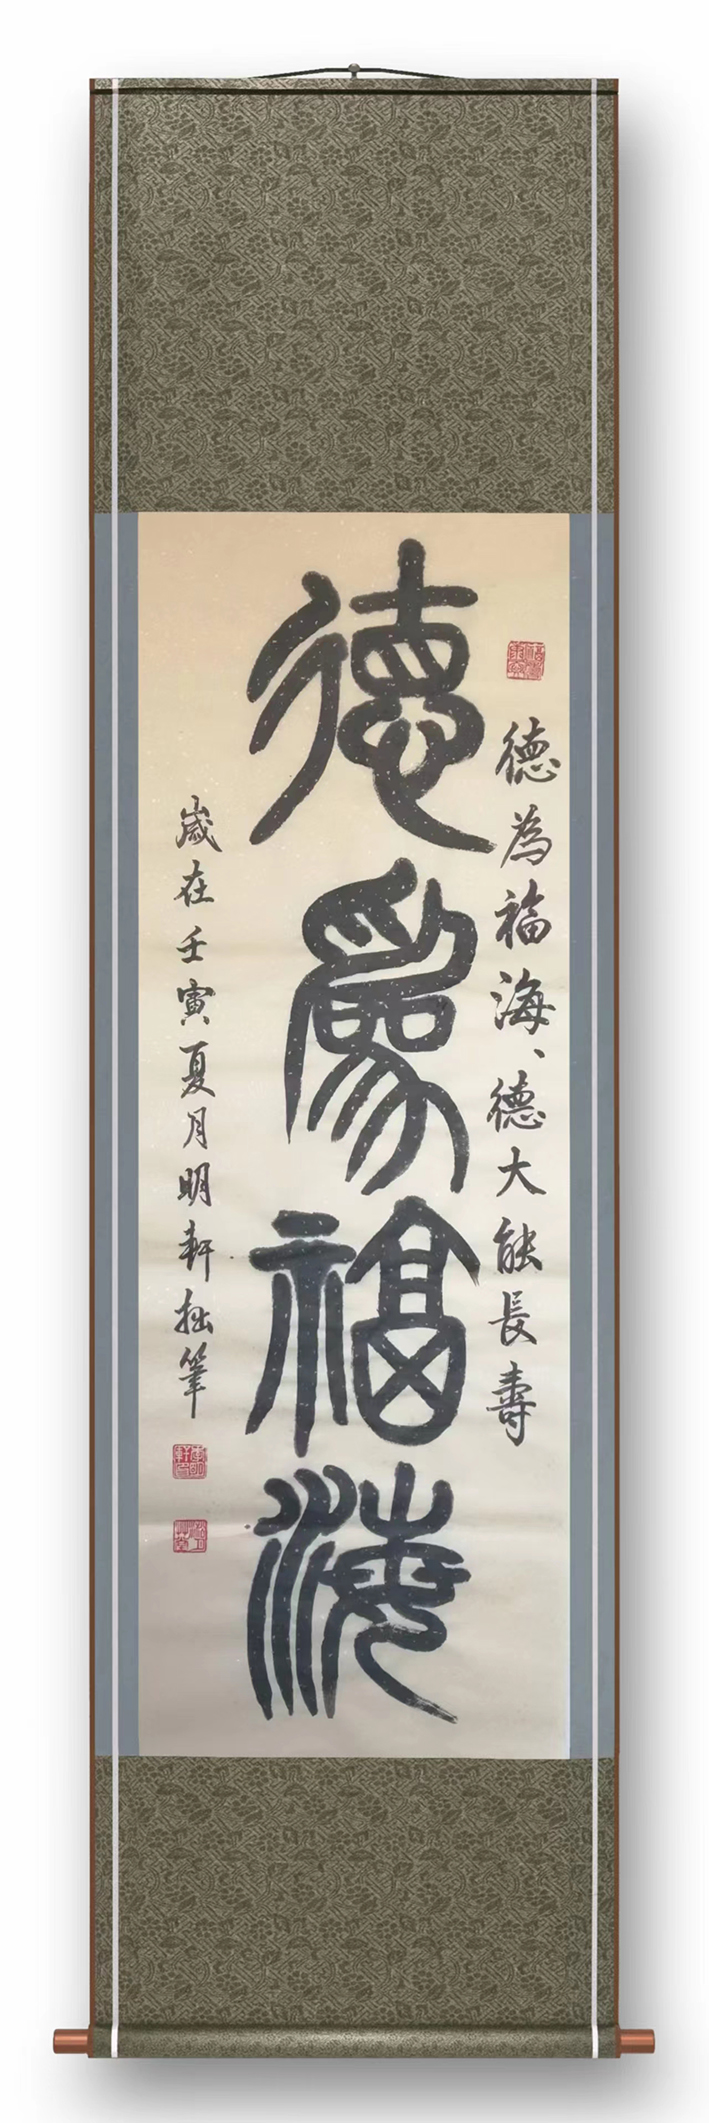 德為福海、德大能長壽
德爲福海
歲在壬寅夏月明軒拙筆